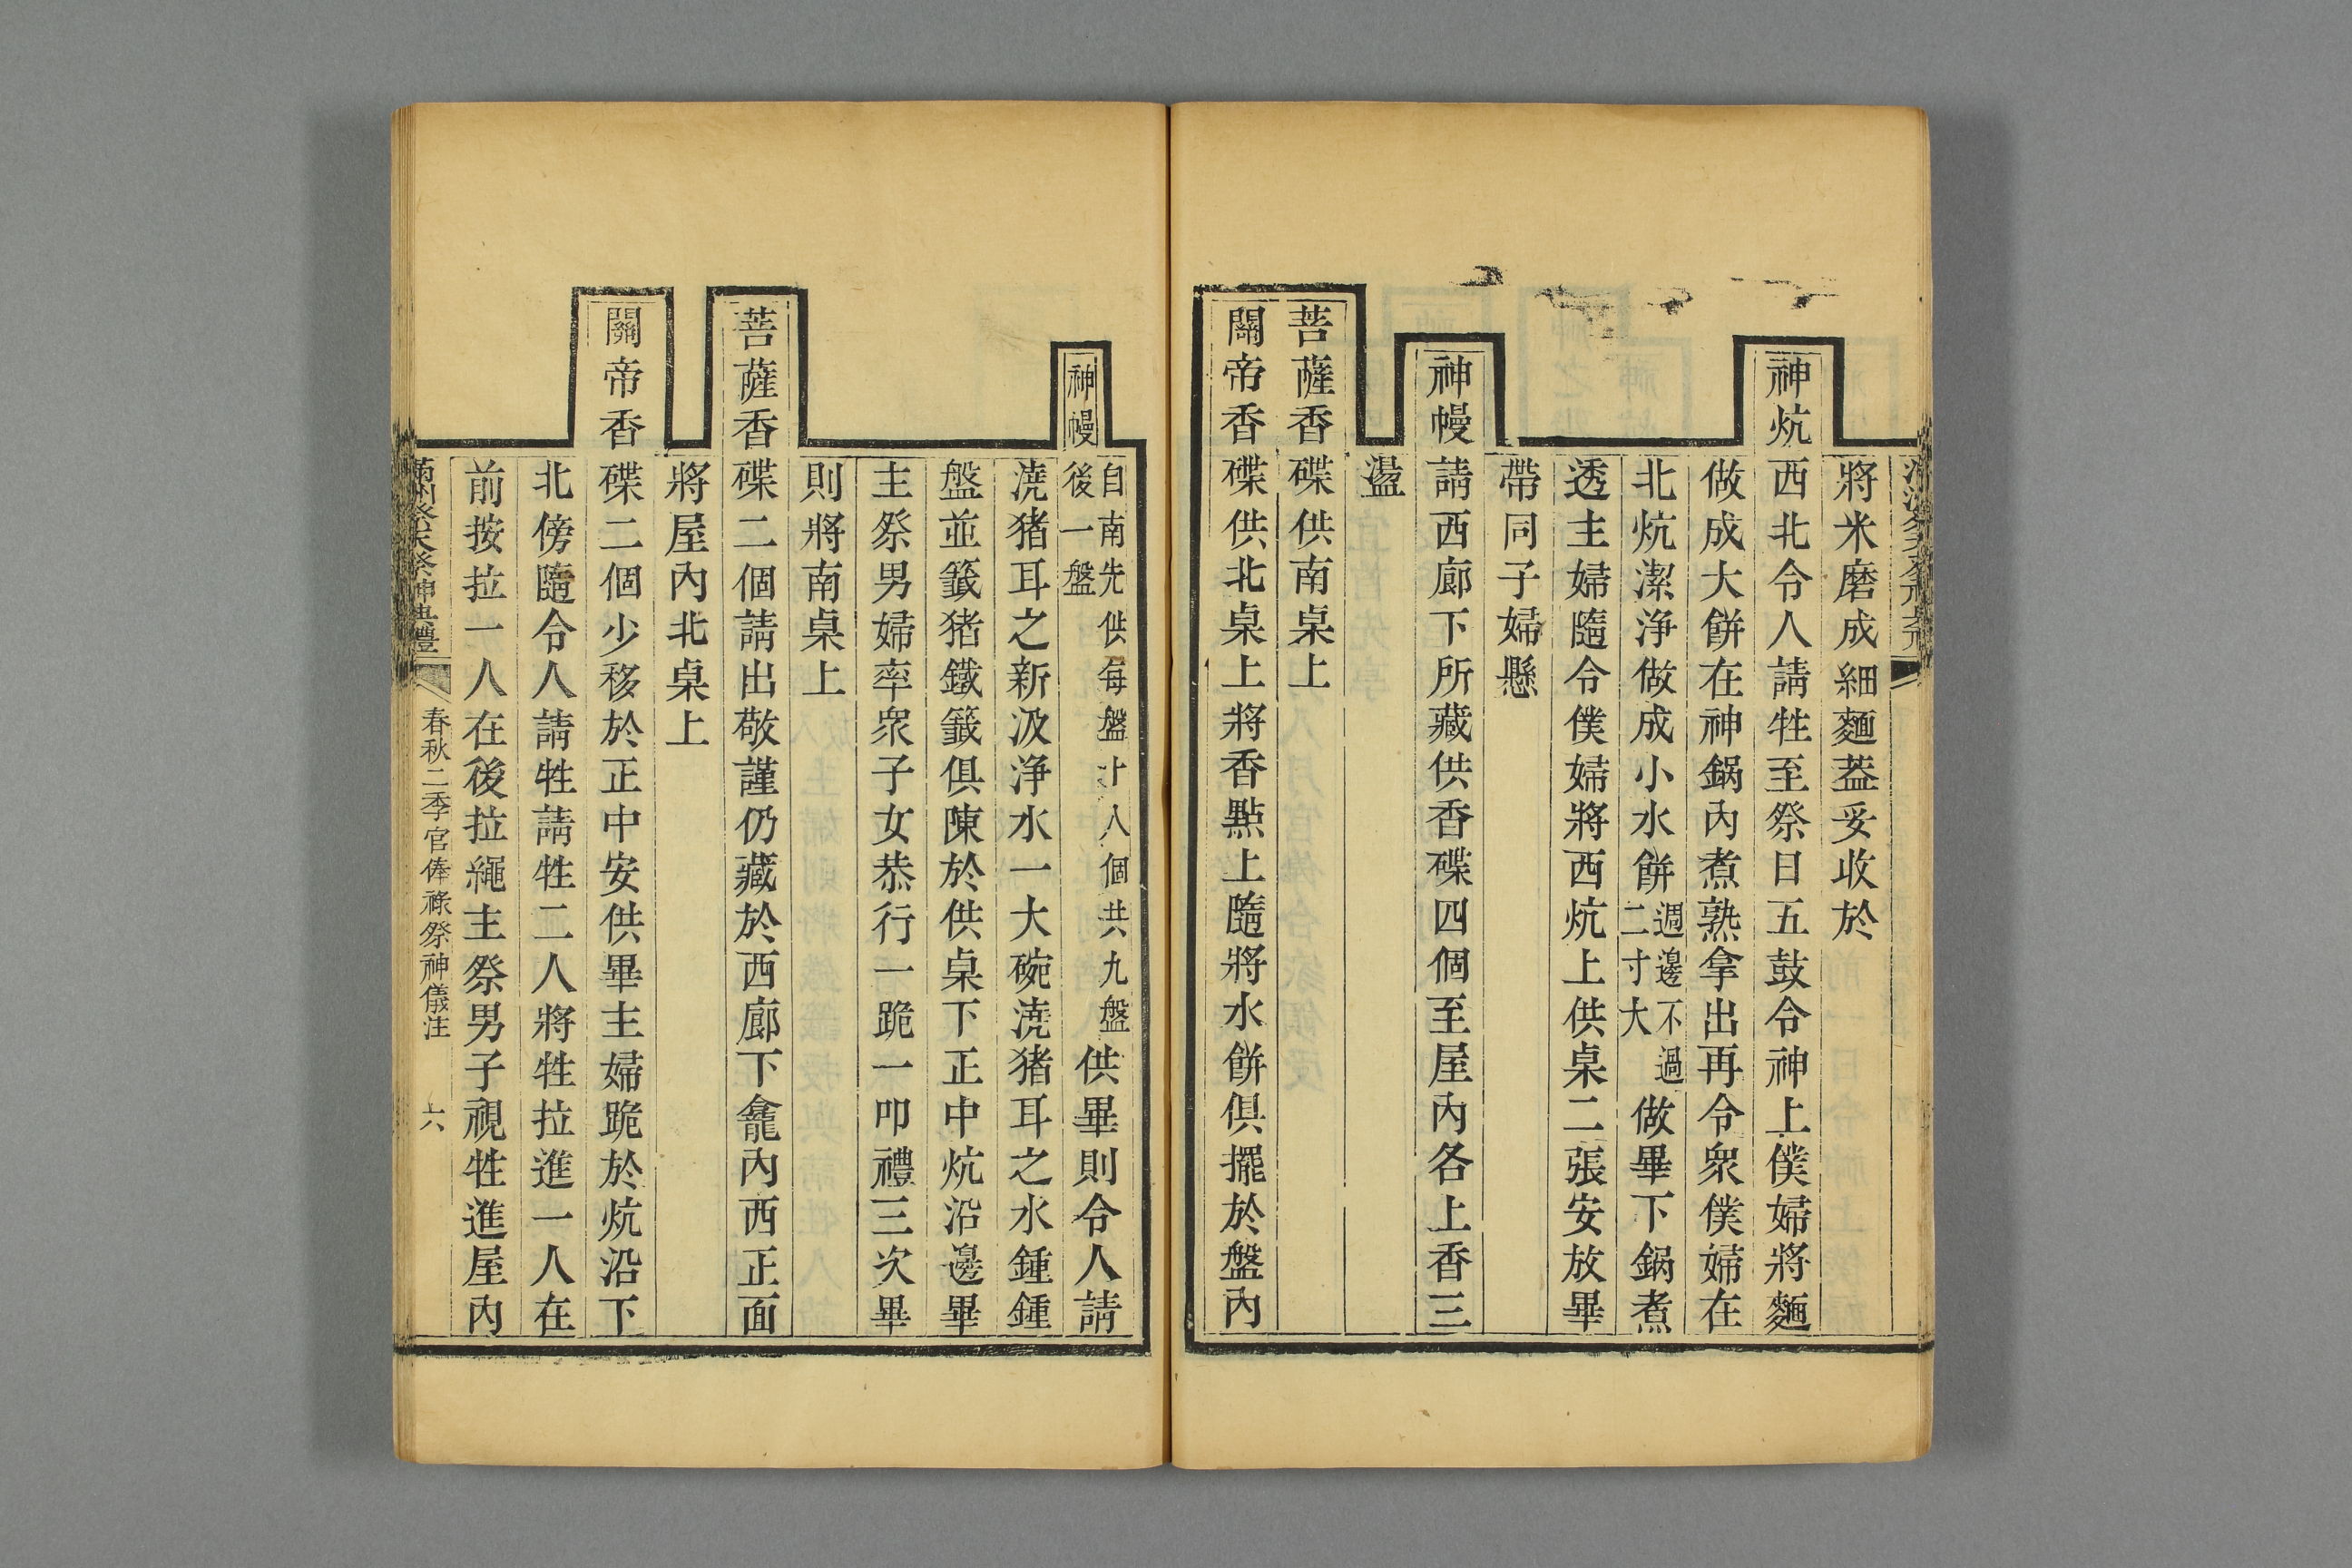 將米磨成細麵葢妥收於
神炕西北令人請牲至祭日五鼓令神上僕婦將麵
做成大餅在神鍋內煮熟拿出再令衆僕婦在
北炕潔浄做成小水餅週邊不過二寸大做畢下鍋煮
透主婦隨令僕婦將西炕上供桌二張安放畢
帶同子婦懸
神幔請西廊下所藏供香碟四個至屋內各上香三
盪
菩薩香碟供南桌上
關帝香碟供北桌上將香點上隨將水餅俱擺於盤內
神幔自南先供每盤十八個共九盤後一盤供畢則令人請
澆猪耳之新汲浄水一大碗澆猪耳之水鍾鍾
盤並籤猪鐵籤俱陳於供桌下正中炕沿邊畢
主祭男婦率衆子女恭行一跪一叩禮三次畢
則將南桌上
菩薩香碟二個請出敬謹仍藏於西廊下龕內西正面
將屋內北桌上
關帝香碟二個少移於正中安供畢主婦跪於炕沿下
北傍隨令人請牲請牲二人將牲拉進一人在
前按拉一人在後拉繩主祭男子視牲進屋內
滿洲祭天祭神典禮 春秋二季官俸祿祭神儀注 六